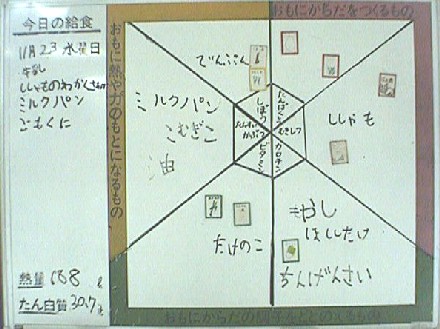 今日の給食
11月23 水曜日
牛乳
ししゃものわかさあげ
ミルクパン
ごもくに
熱量 688
たん白質 30.7
おもに熱や力のもとになるもの
おもにからだをつくるもの
おもにからだの調子をととのえるもの
でんぷん
ミルクパン
こむぎこ
油
ししゃも
もやし
ほししたけ
ちんげんさい
たけのこ
しぼう
たんぱくしつ
むきしつ
カロチン
ビタミン